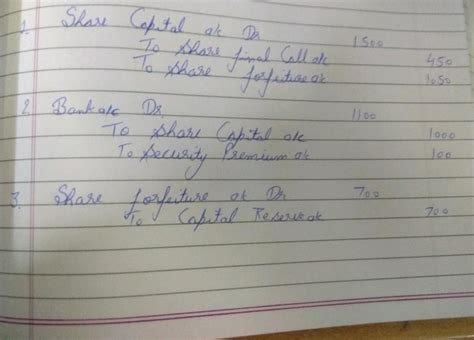 1. Share Capital a/c Dr 1500
To Share final Call a/c 450
To Share forfeiture a/c 1050
2. Bank a/c Dr. 1100
To Share Capital a/c 1000
To Security Premium a/c 100
3. Share forfeiture a/c Dr 700
To Capital Reserve a/c 700